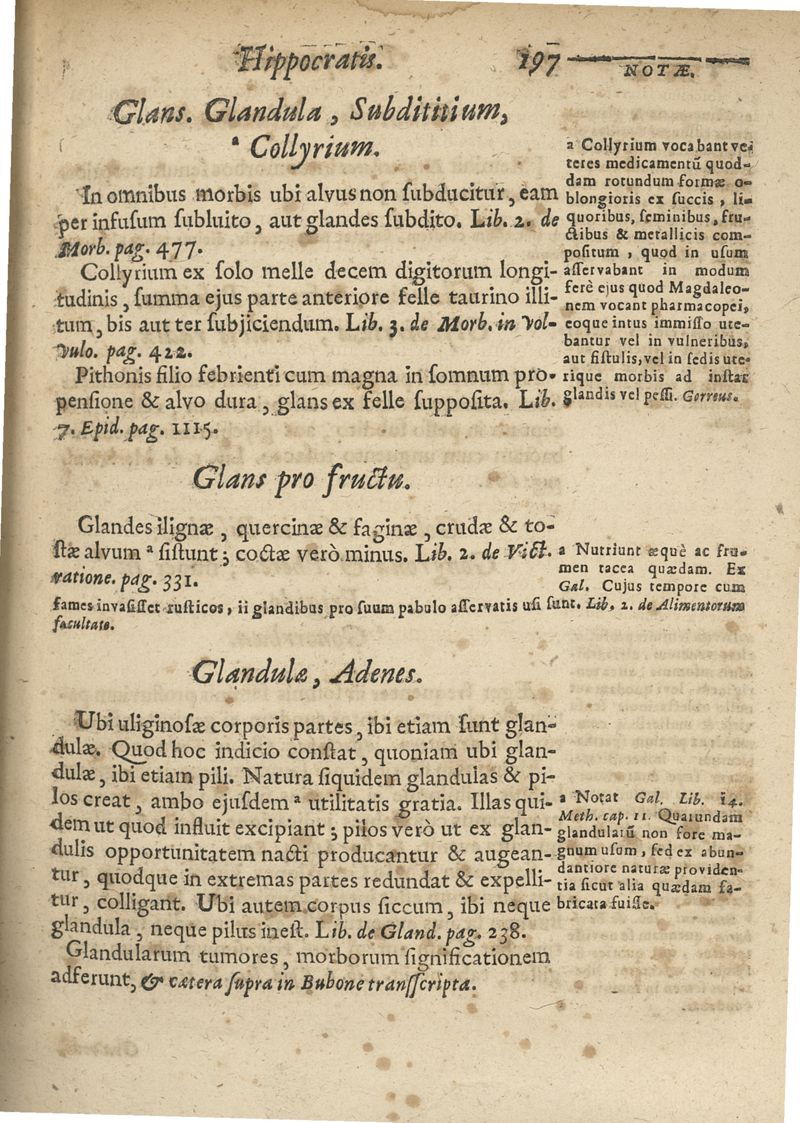 Hippocratis. 197
NOTÆ.
Glans. Glandula, Subdititium,
ᵃ Collyrium.
In omnibus morbis ubi alvus non subducitur, eam
per infusum subluito, aut glandes subdito. Lib. 2. de
Morb. pag. 477.
Collyrium ex solo melle decem digitorum longi-
tudinis, summa ejus parte anteriore felle taurino illi-
tum, bis aut ter subjiciendum. Lib. 3. de Morb. in Vol-
vulo. pag. 422.
Pithonis filio febrienti cum magna in somnum pro-
pensione & alvo dura, glans ex felle supposita. Lib.
7. Epid. pag. 1115.
a Collyrium vocabant ve-
teres medicamentū quod-
dam rotundum formæ o-
blongioris ex succis, li-
quoribus, seminibus, fru-
ctibus & metallicis com-
positum, quod in usum
asservabant in modum
ferè ejus quod Magdaleo-
nem vocant pharmacopei,
eoque intus immisso ute-
bantur vel in vulneribus,
aut fistulis, vel in sedis ute-
rique morbis ad instar
glandis vel pessi. Gorreus.
Glans pro fructu.
Glandes ilignæ, quercinæ & faginæ, crudæ & to-
stæ alvum ᵃ sistunt; coctæ verò minus. Lib. 2. de Vict.
ratione. pag. 331.
a Nutriunt æquè ac fru-
men tacea quædam. Ex
Gal. Cujus tempore cum
fames invasisset rusticos, ii glandibus pro suum pabulo asservatis usi sunt. Lib. 2. de Alimentorum
facultate.
Glandulæ, Adenes.
Ubi uliginosæ corporis partes, ibi etiam sunt glan-
dulæ. Quod hoc indicio constat, quoniam ubi glan-
dulæ, ibi etiam pili. Natura siquidem glandulas & pi-
los creat, ambo ejusdem ᵃ utilitatis gratia. Illas qui-
dem ut quod influit excipiant; pilos verò ut ex glan-
dulis opportunitatem nacti producantur & augean-
tur, quodque in extremas partes redundat & expelli-
tur, colligant. Ubi autem corpus siccum, ibi neque
glandula, neque pilus inest. Lib. de Gland. pag. 238.
Glandularum tumores, morborum significationem
adferunt, & cætera supra in Bubone transscripta.
a Notat Gal. Lib. 14.
Meth. cap. 11. Quarundam
glandularū non fore ma-
gnum usum, sed ex abun-
dantiore naturæ providen-
tia sicut alia quædam fa-
bricata fuisse.